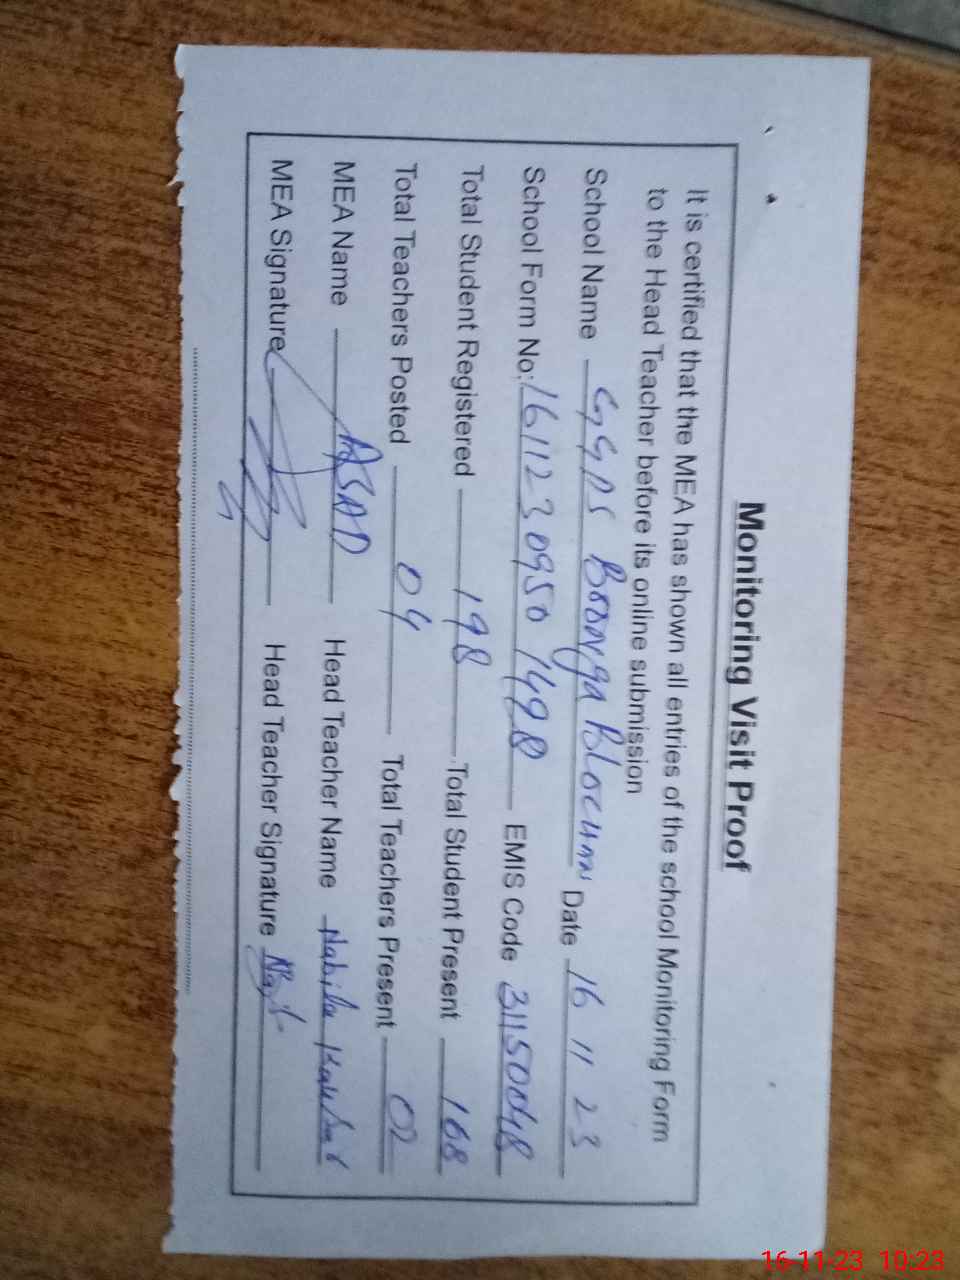 Monitoring Visit Proof
It is certified that the MEA has shown all entries of the school Monitoring Form
to the Head Teacher before its online submission
School Name GGPS Bronga Date 16 11 23
School Form No: 161123 0950 1498 EMIS Code
Total Student Registered 198 Total Student Present 168
Total Teachers Posted 04 Total Teachers Present 02
MEA Name ASAD Head Teacher Name Nabila Kausar
MEA Signature Head Teacher Signature
16-11-23 10:23